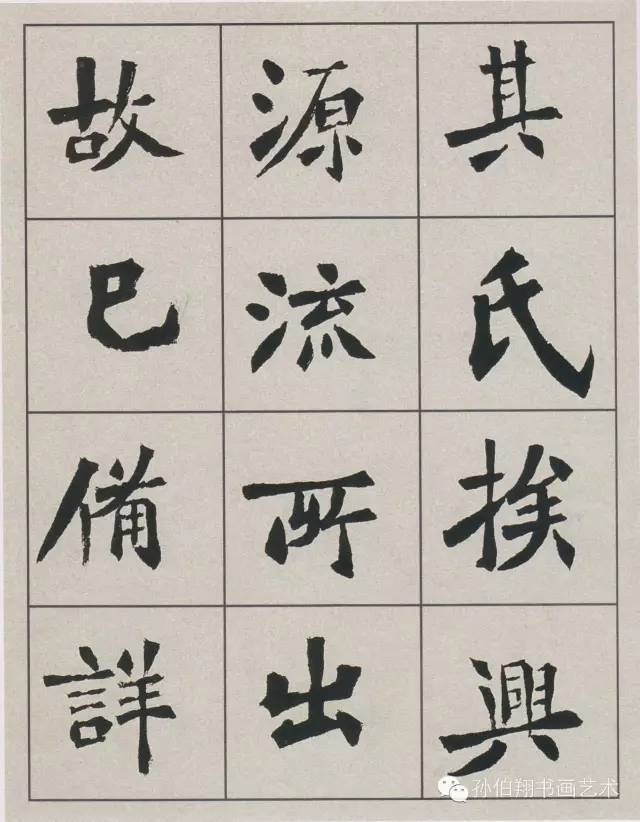 其氏挨興
源流所出
故已備詳
孙伯翔书画艺术